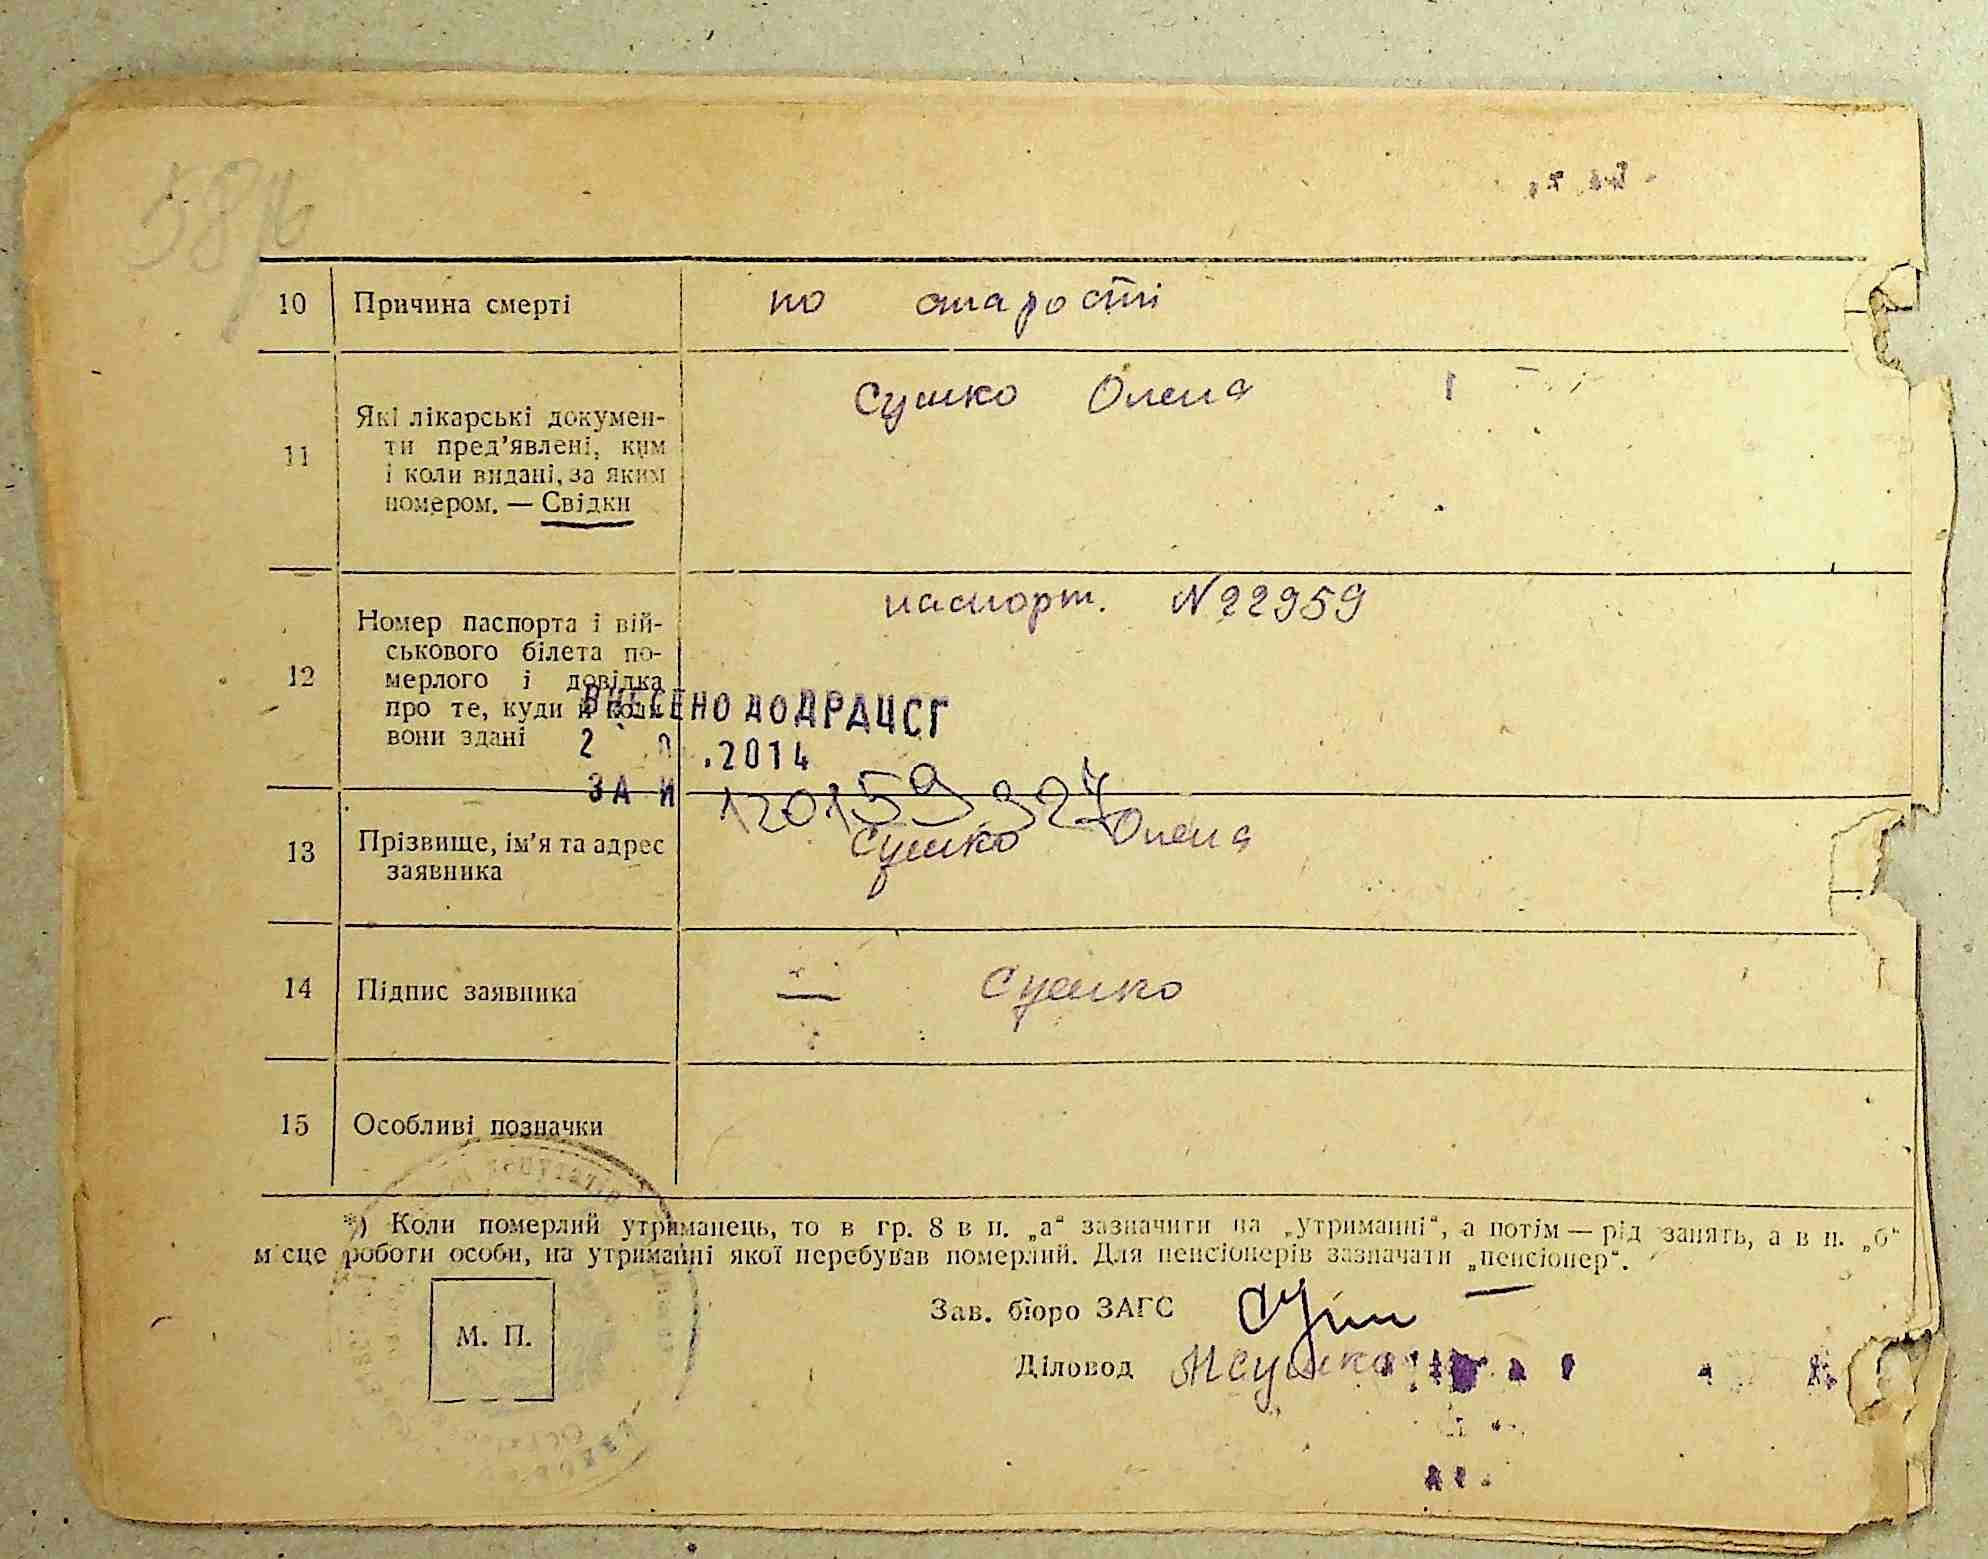 10 Причина смерті по старости
Які лікарські докумен-
ти пред'явлені, ким
11 і коли видані, за яким
номером. — Свідки
Сушко Олена
паспорт. N 22959
Номер паспорта і вій-
ськового білета по-
12 мерлого і довідка
про те, куди й коли
вони здані
ВНЕСЕНО ДО ДРАЦСГ
.2014
ЗА N 120159327
Сушко Олена
13 Прізвище, ім'я та адрес
заявника
14 Підпис заявника Сушко
15 Особливі позначки
*) Коли померлий утриманець, то в гр. 8 в п. „а“ зазначити на „утриманні“, а потім — рід занять, а в п. „б“
місце роботи особи, на утриманні якої перебував померлий. Для пенсіонерів зазначати „пенсіонер“.
Зав. бюро ЗАГС
М. П.
Діловод